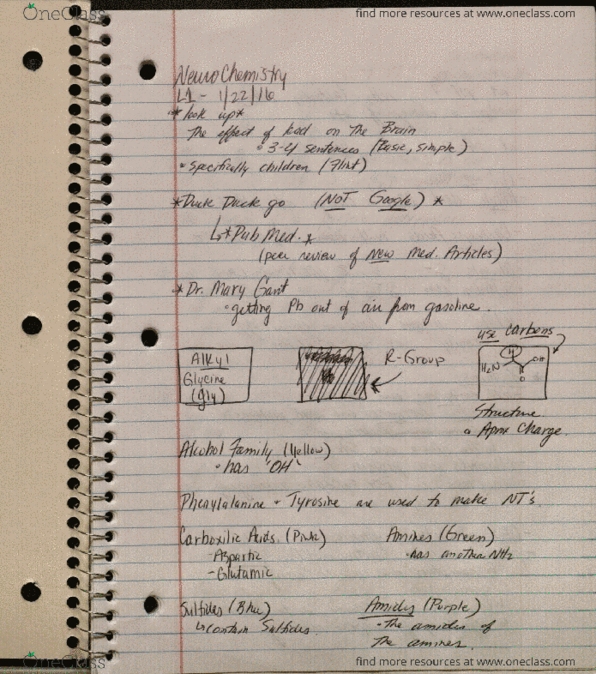 OneClass
find more resources at www.oneclass.com
NeuroChemistry
L1 - 1/22/16
*look up*
The effect of lead on The Brain
• 3-4 sentences (Basic, simple)
• Specifically children (Flint)
*Duck Duck go (NOT Google) *
↳*Pub Med.*
(peer review of New Med. Articles)
*Dr. Mary Gant
• getting Pb out of air from gasoline.
use carbons
Alkyl
Glycine
(gly)
R-Group
H
H2N
OH
O
Structure
Aprox Charge.
Alcohol Family (Yellow)
• has 'OH'
Phenylalanine + Tyrosine are used to make NT's
Carboxilic Acids. (Pink) Amines (Green)
- Aspartic • has another NH2
- Glutamic
Sulfides (Blue) Amides (Purple)
↳ contain Sulfides • The amides of
The amines.
OneClass
find more resources at www.oneclass.com